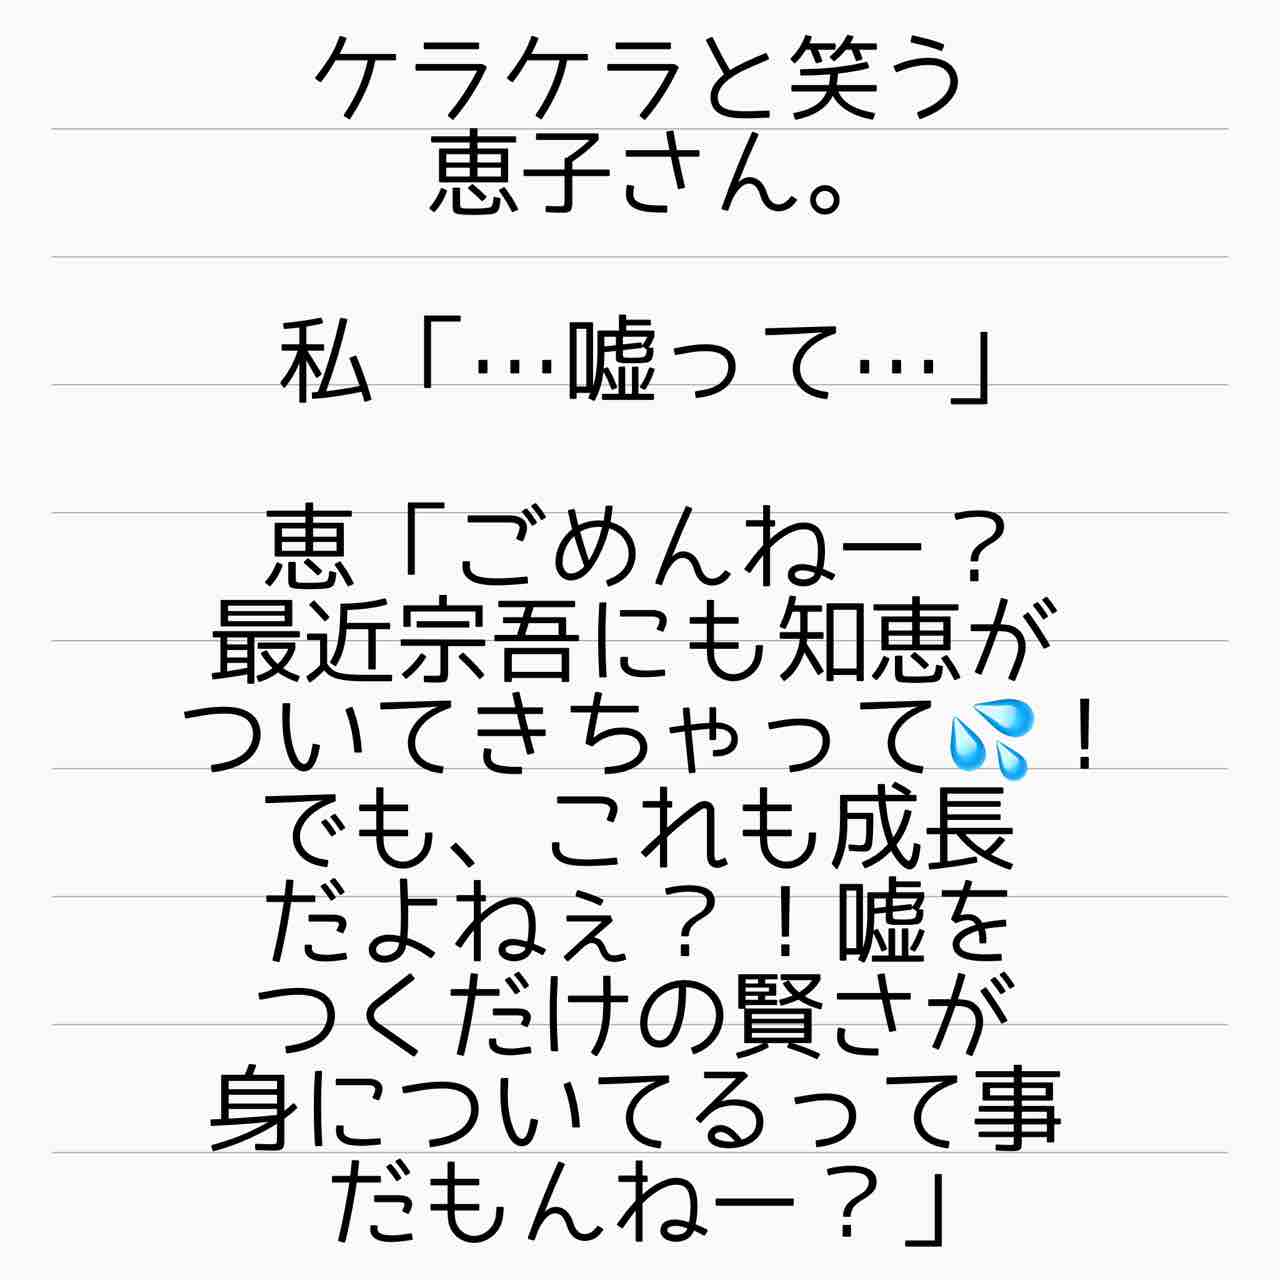 ケラケラと笑う
恵子さん。
私「…嘘って…」
恵「ごめんねー？
最近宗吾にも知恵が
ついてきちゃって💦！
でも、これも成長
だよねぇ？！嘘を
つくだけの賢さが
身についてるって事
だもんねー？」